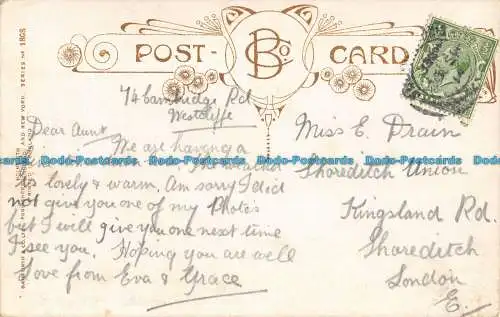 POST- B Co CARD
SERIES No 1868
74 Cambridge Rd
Westcliffe
Dear Aunt
We are having a
The weather
is lovely & warm. Am sorry I did
not give you one of my Photos
but I will give you one next time
I see you. Hoping you are well
Love from Eva & Grace
Miss E. Drain
Shoreditch Union
Kingsland Rd.
Shoreditch
London
E.
Dodo-Postcards.com Dodo-Postcards.com Dodo-Postcards.com